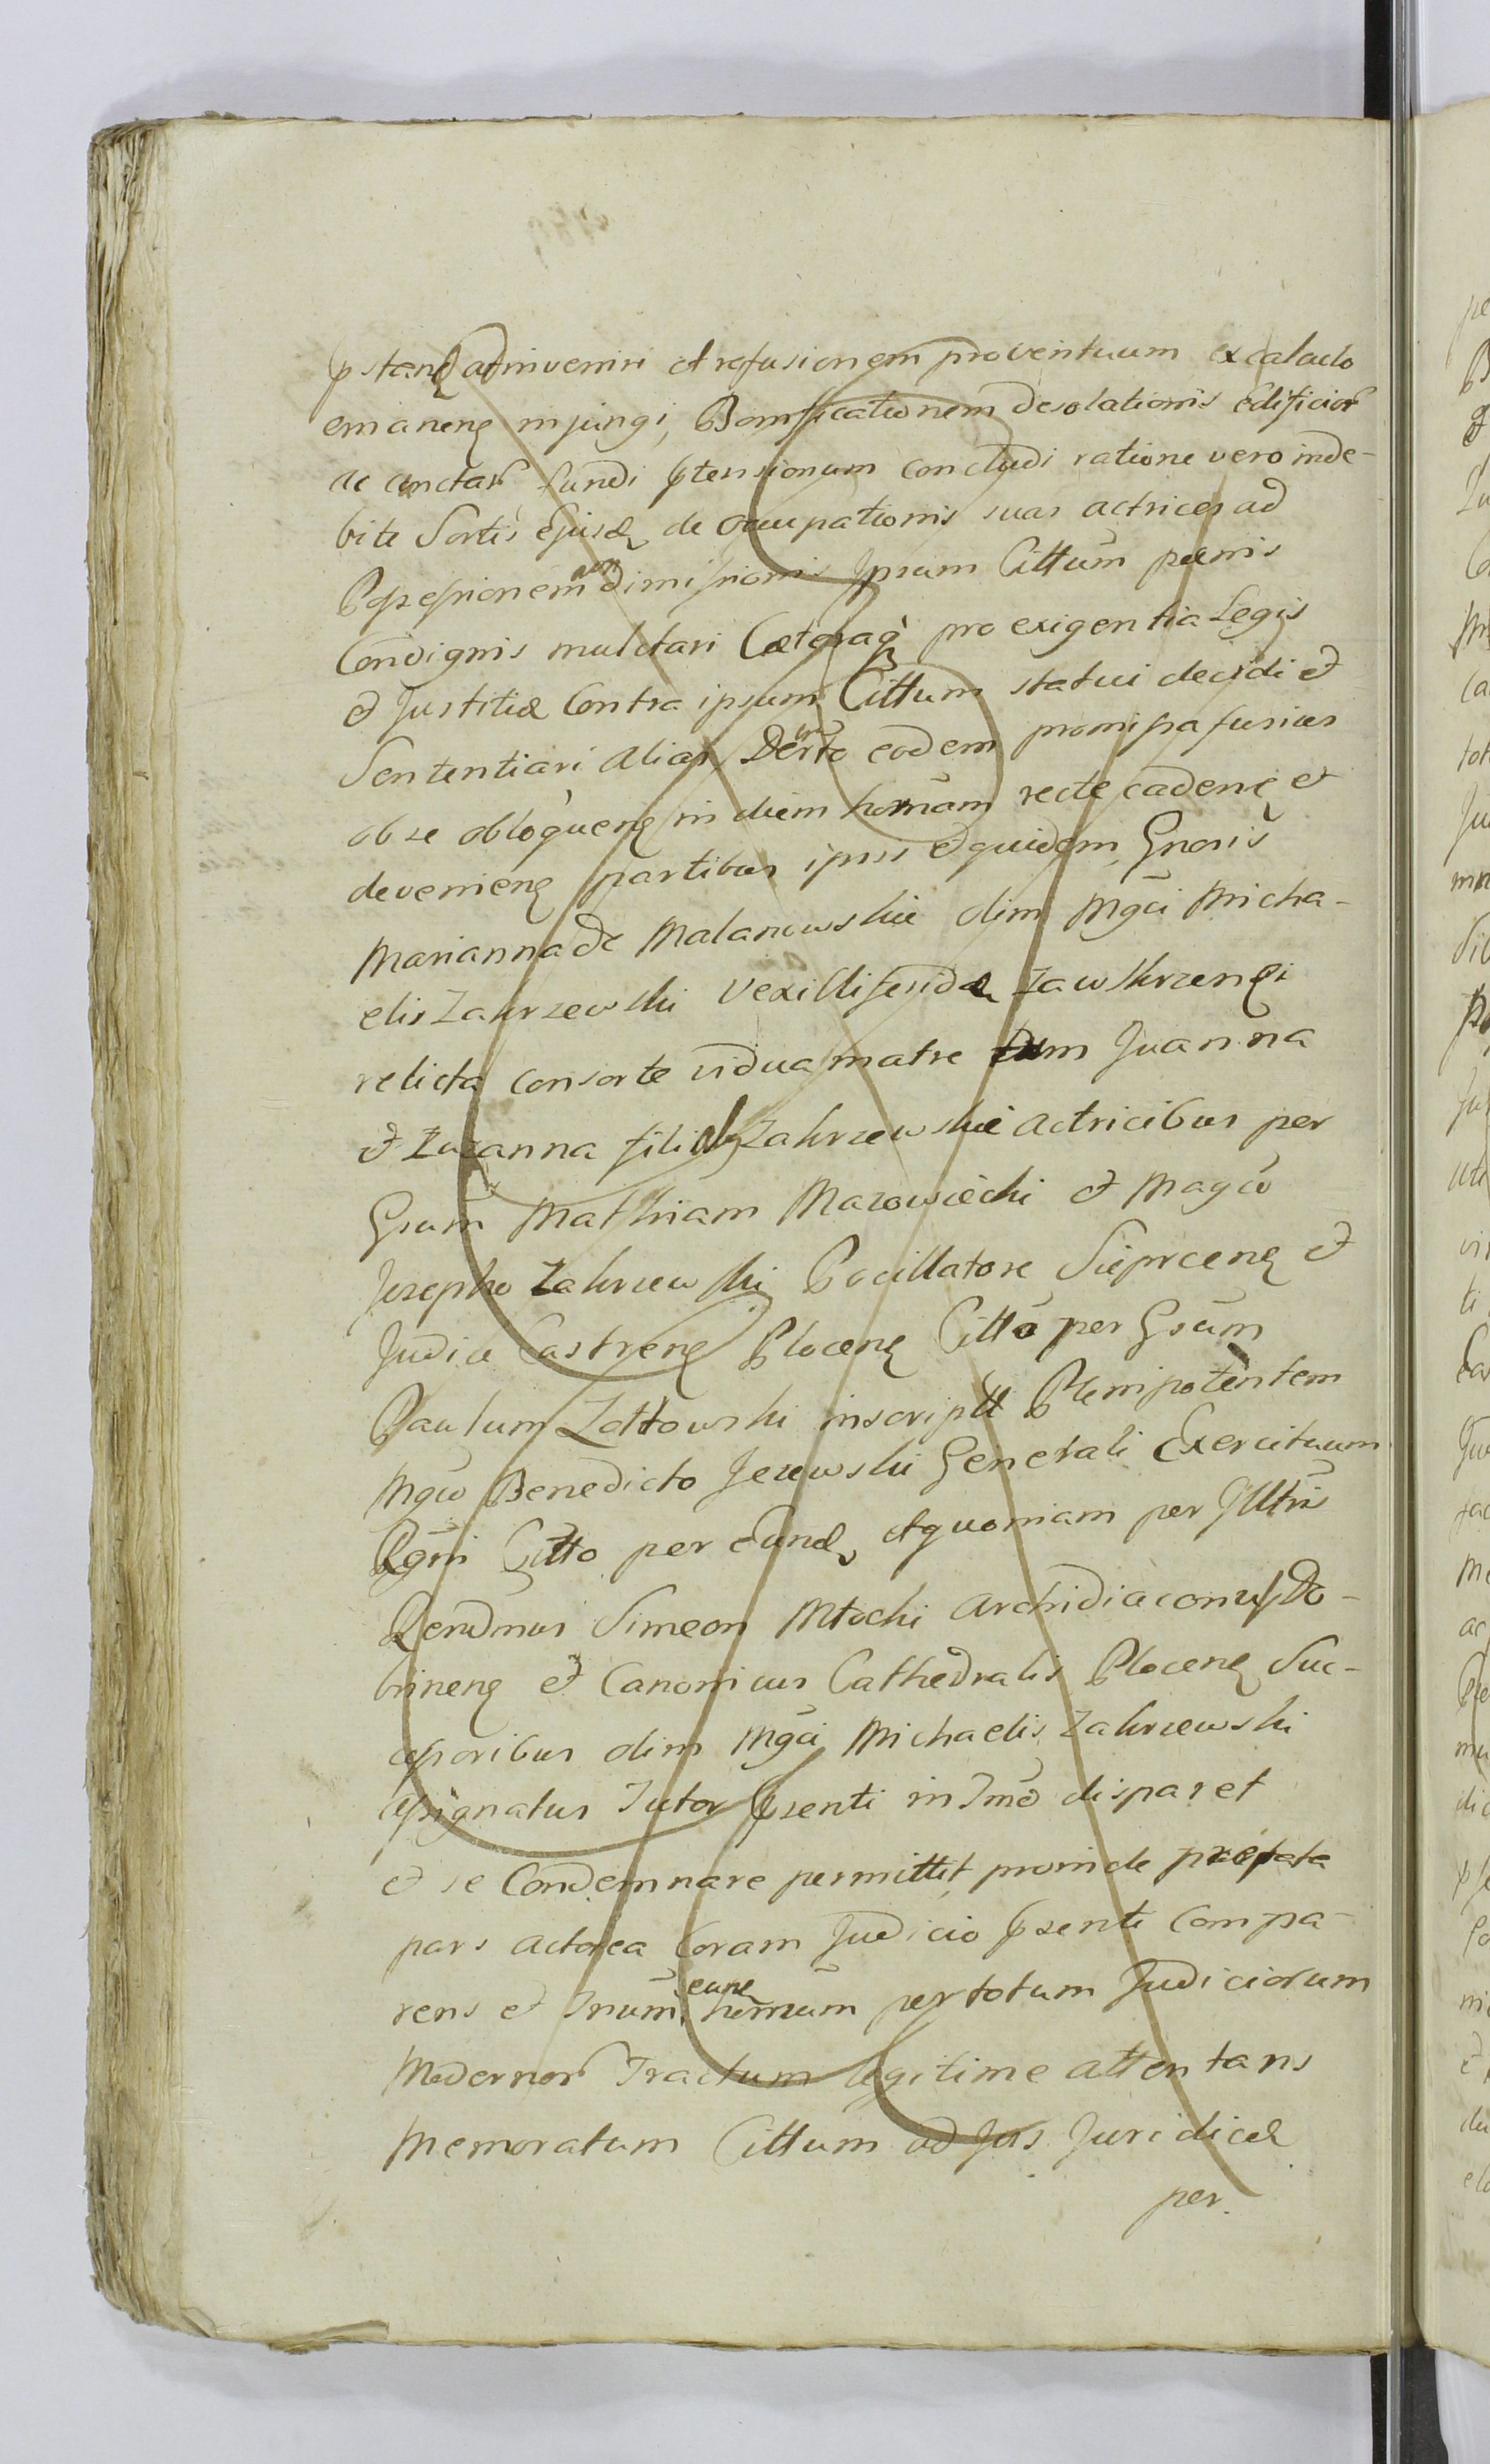 pstandā adinveniri et refusionem proventuum ex calculo
emanenē injungi, Bonificationem desolationis Edificior
ac cunctar fundi ptensionum concludi ratione vero inde-
bite Sortis Ejusd de occupationis suas actrices ad
Possessionem non dimissionis Ipsum Cittum pœnis
Condignis mulctari Cæteraq pro exigentia Legis
et Justitiæ Contra ipsum Cittum statui decidi et
Sententiari alias in Derto eodem promissa fusius
ob se obloquenē in diem hornam recte cadenē et
devenienē partibus ipsis et quidem Gnosis
Marianna de Malanowskie olim Mgci Micha-
elis Zakrzewski Vexilliferidæ Zawskrzensi
relicta consorte vidua matre tum Juanna
et Zuzanna filiab Zakrzewskie actricibus per
Gsum Mathiam Mazowiecki et Magco
Josepho Zakrzewski Pocillatore Sieprcenē et
Judice Castrenē Plocenē Citto per Gsum
Paulum Zottowski inscriptt Plenipotentem
Mgco Benedicto Jezewski Generali Exercituum
Regni Citto per eund, et quoniam per Illtris
Rendmus Simeon Mtocki Archidiaconus Do-
brinenē et Canonicus Cathedralis Plocenē Suc-
cessoribus olim Mgci Michaelis Zakrzewski
assignatus Tutor psenti in Tmo disparet
et se Condemnare permittit proinde præfata
pars actorea Coram Judicio psenti Compa-
rens et Tnum eund hornum per totum Judiciorum
Modernor Tractum legitime attentans
Memoratum Cittum ad Jus Juridice
per